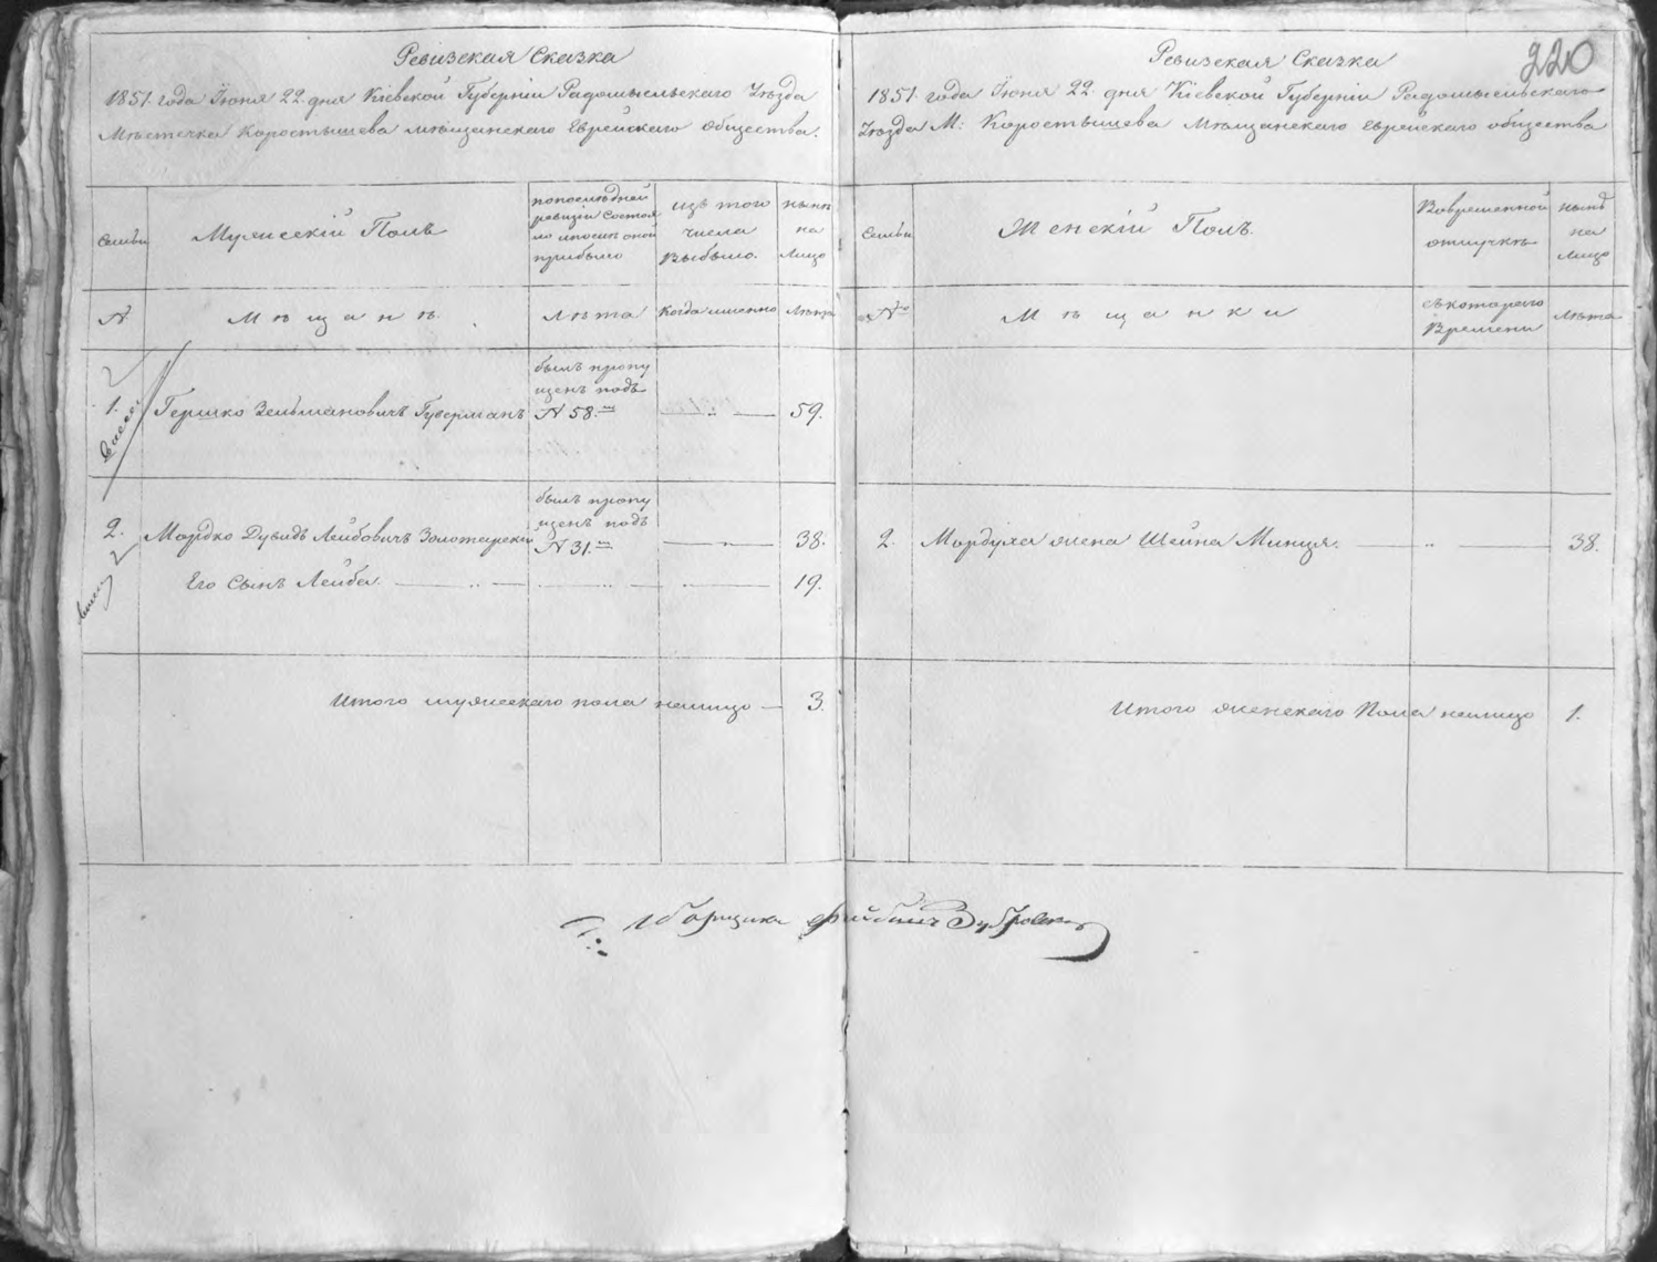 Ревизская Сказка
1851. года Июня 22. дня Кіевской Губерніи Радомысльскаго Уѣзда
Мѣстечка Коростышева мѣщанскаго Еврейскаго общества.
Семьи
Мужескій Полъ
попослѣдней
ревизіи состоя
ло ипослѣ оной
прибыло
изъ того
числа
выбыло.
нынѣ
на
Лицо
№
Мѣщанѣ.
Лѣта
Когда именно
Лѣта
1.
Гершко Зельмановичъ Гуверманъ
былъ пропу
щенъ подъ
№ 58.
59.
2.
Мордко Дувидъ Лейбовичъ Золотарскій
былъ пропу
щенъ подъ
№ 31.
38.
Его Сынъ Лейба.
19.
Итого мужескаго пола налицо
3.
220
Ревизская Сказка
1851. года Июня 22. дня Кіевской Губерніи Радомысльскаго
Уѣзда М: Коростышева Мѣщанскаго Еврейскаго общества
Семьи
Женскій Полъ.
Вовременной
отлучкѣ
нынѣ
на
лицо
№
Мѣщанки
съкотораго
Времени
Лѣта
2.
Мордуха жена Шейна Минця.
38.
Итого женскаго Пола налицо
1.